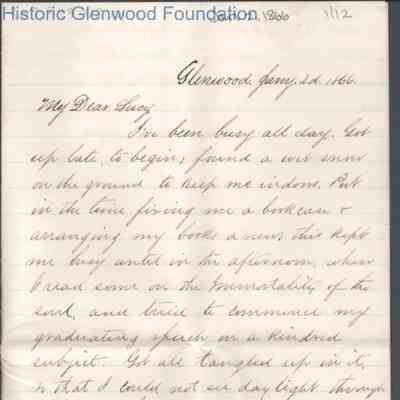 Historic Glenwood Foundation
Jan. 2, 1866
1/12
Glenwood, Jany. 2d. 1866.
My Dear Lucy
I've been busy all day. Got
up late, to begin; found a wet snow
on the ground to keep me indoors. Put
in the time fixing me a bookcase &
arranging my books anew this kept
me busy until in the afternoon, when
I read some on the Immortality of the
soul, and tried to commence my
graduating speech on a kindred
subject. Got all tangled up in it,
so that I could not see daylight through